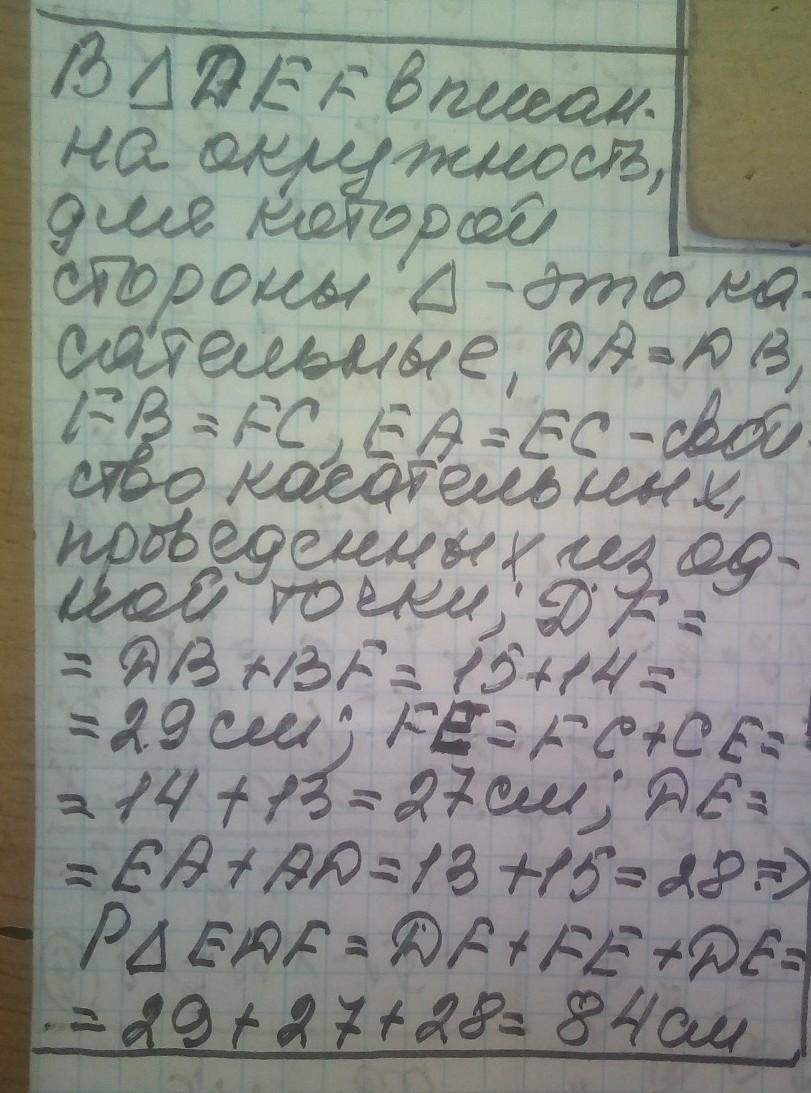 В Δ DEF вписан-
на окружность,
для которой
стороны Δ - это ка-
сательные, DA = DB,
FB = FC, EA = EC - свой-
ство касательных,
проведенных из од-
ной точки; DF =
= DB + BF = 15 + 14 =
= 29 см; FE = FC + CE =
= 14 + 13 = 27 см; DE =
= EA + AD = 13 + 15 = 28 =>
PΔ EDF = DF + FE + DE =
= 29 + 27 + 28 = 84 см